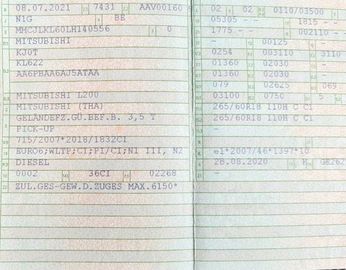 08.07.2021 7431 AAV00160
N1G BE
MMCJLKL60LH140556 0
MITSUBISHI
KJ0T
KL622
AA6PBAA6AU5ATAA
MITSUBISHI L200
MITSUBISHI (THA)
GELÄNDEFZ.GÜ.BEF.B. 3,5 T
PICK-UP
715/2007*2018/1832CI
EURO6;WLTP;CI;PI/CI;N1 III, N2
DIESEL
0002 36CI 02268
ZUL.GES-GEW.D.ZUGES MAX.6150*
02 02 0110/03500
05305 -- 1815 --
1775 -- -- 002110 --
-- 00125
0254 003110 3110
01360 02030 --
01360 02030 --
079 02625 069
03100 0750 5
265/60R18 110H C C1
265/60R18 110H C C1
-
-
e1*2007/46*1397*10
28.08.2020 K